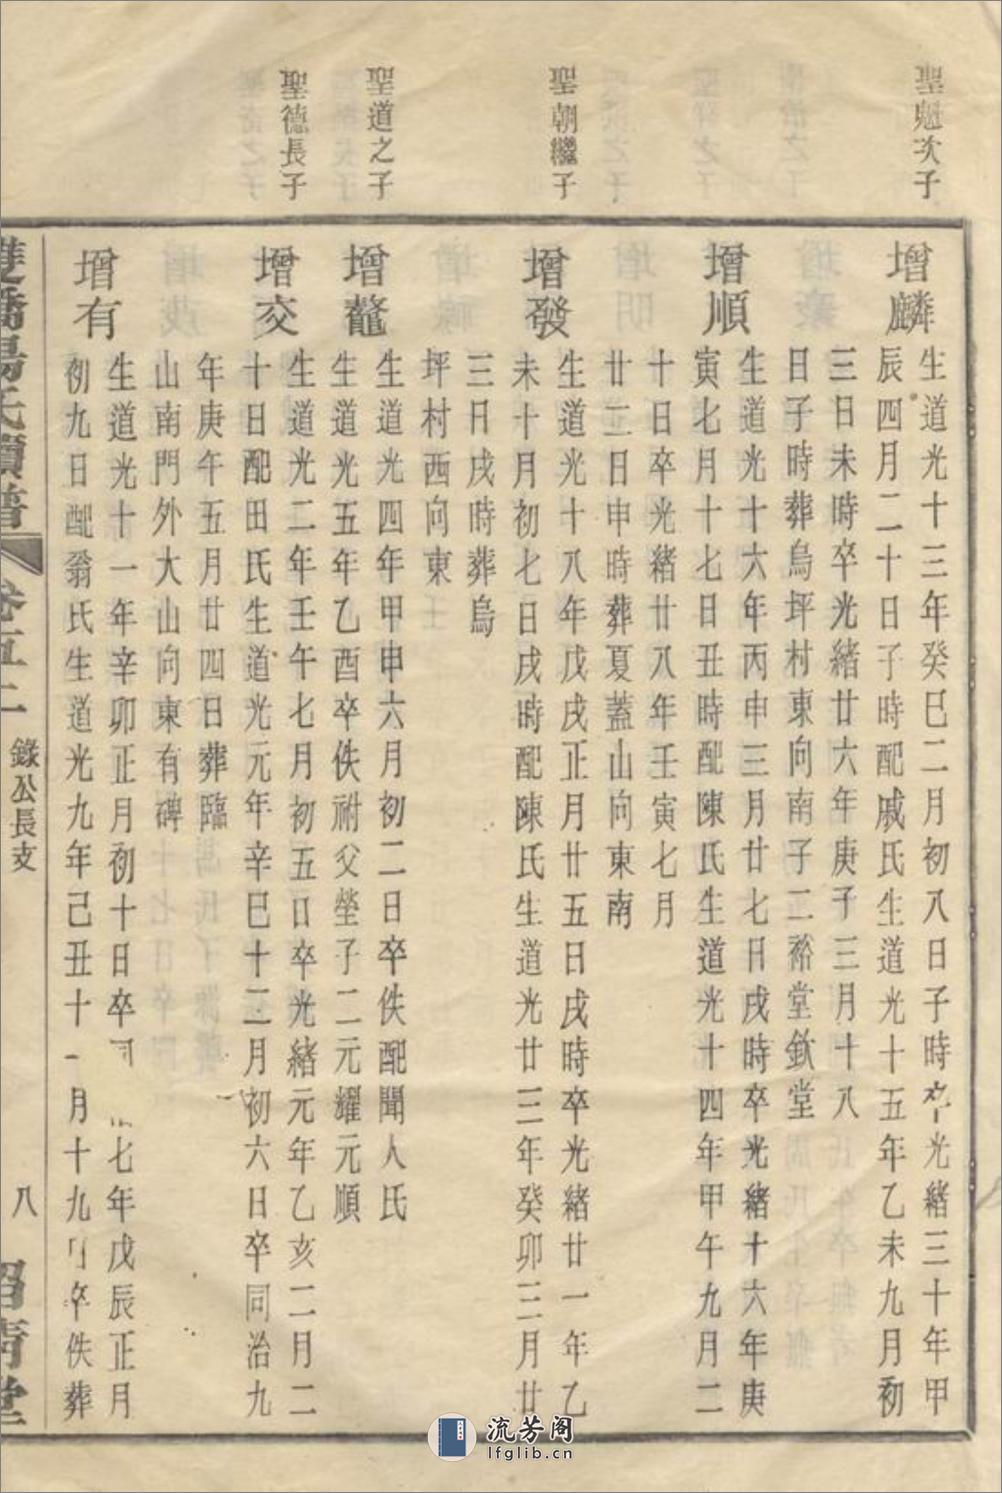 聖魁次子
增麟
生道光十三年癸巳二月初八日子時卒光緒三十年甲
辰四月二十日子時配戚氏生道光十五年乙未九月初
三日未時卒光緒廿六年庚子三月十八
日子時葬烏坪村東向南子二裕堂欽堂
增順
生道光十六年丙申三月廿七日戌時卒光緒十六年庚
寅七月十七日丑時配陳氏生道光十四年甲午九月二
十日卒光緒廿八年壬寅七月
廿二日申時葬夏蓋山向東南
聖朝繼子
增發
生道光十八年戊戌正月廿五日戌時卒光緒廿一年乙
未十月初七日戌時配陳氏生道光廿三年癸卯三月廿
三日戌時葬烏
坪村西向東
聖道之子
增鼇
生道光四年甲申六月初二日卒佚配聞人氏
生道光五年乙酉卒佚祔父塋子二元耀元順
聖德長子
增交
生道光二年壬午七月初五日卒光緒元年乙亥二月二
十日配田氏生道光元年辛巳十二月初六日卒同治九
年庚午五月廿四日葬臨
山南門外大山向東有碑
增有
生道光十一年辛卯正月初十日卒同 七年戊辰正月
初九日配翁氏生道光九年己丑十一月十九日卒佚葬
雙橋楊氏續譜
卷五二
錄公長支
八
流芳阁
lfglib.cn